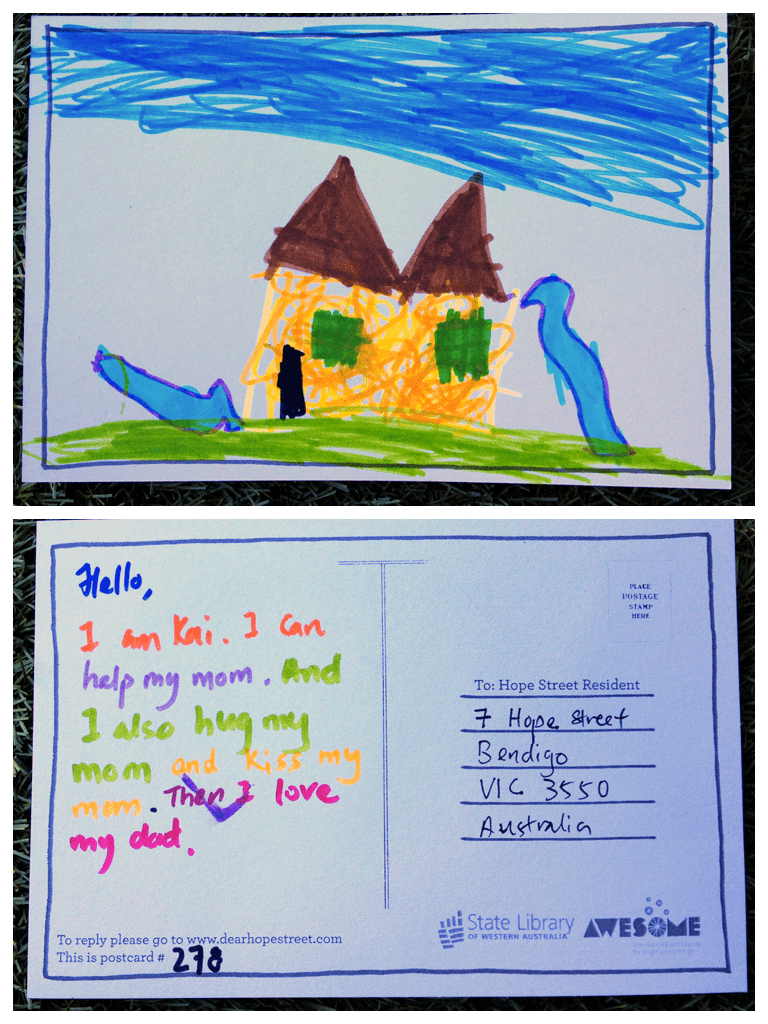 Hello,
I am Kai. I can
help my mom. And
I also hug my
mom and kiss my
mom. Then I love
my dad.
To reply please go to www.dearhopestreet.com
This is postcard # 278
PLACE
POSTAGE
STAMP
HERE
To: Hope Street Resident
7 Hope Street
Bendigo
VIC 3550
Australia
State Library
OF WESTERN AUSTRALIA
AWESOME